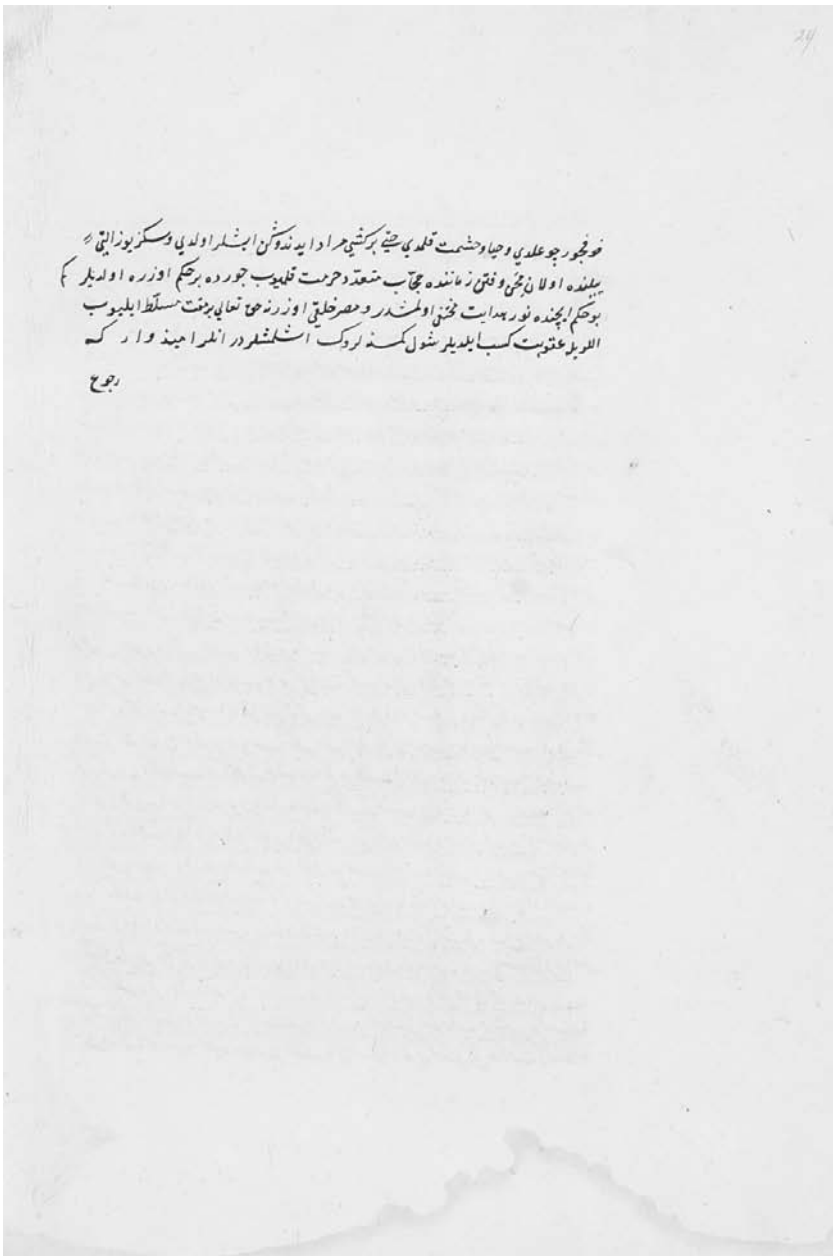 24
فجور چوغلدي وحيا وحشمت قلمدي حتى بر كشي مراد ايدندوكن ايشلر اولدي وسكز يوز التي
ييلنده اولان محن وفتن زماننده حجاب متعدد حرمت قلميوب جورده بر حكم اوزره اولديلر
بو حكم ايچنده نور هدايت مختفي اولمشدر و مصر خلقي اوزرنه حق تعالى مسلط ايليوب
انلر عقوبت كسب ايلديلر شول كمسنه لر وك اشلمشلر در انلرا وار كه
رجوع